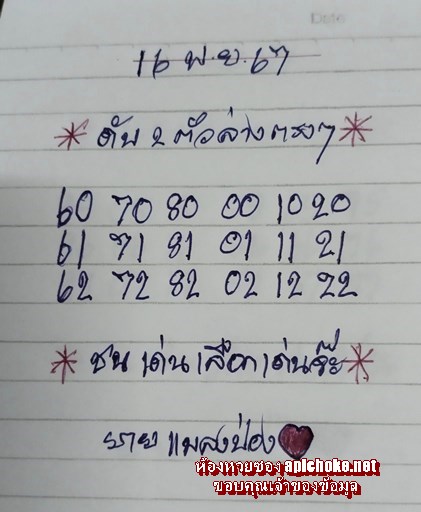 Date
16 พ.ย. 67
* ดับ 2 ตัวล่างตรงๆ *
60 70 80 00 10 20
61 71 81 01 11 21
62 72 82 02 12 22
* ชน เด่น เลือกเด่นจ๊ะ *
นาย แมลงป่อง
ห้องหวยซอง apichoke.net
ขอบคุณเจ้าของข้อมูล